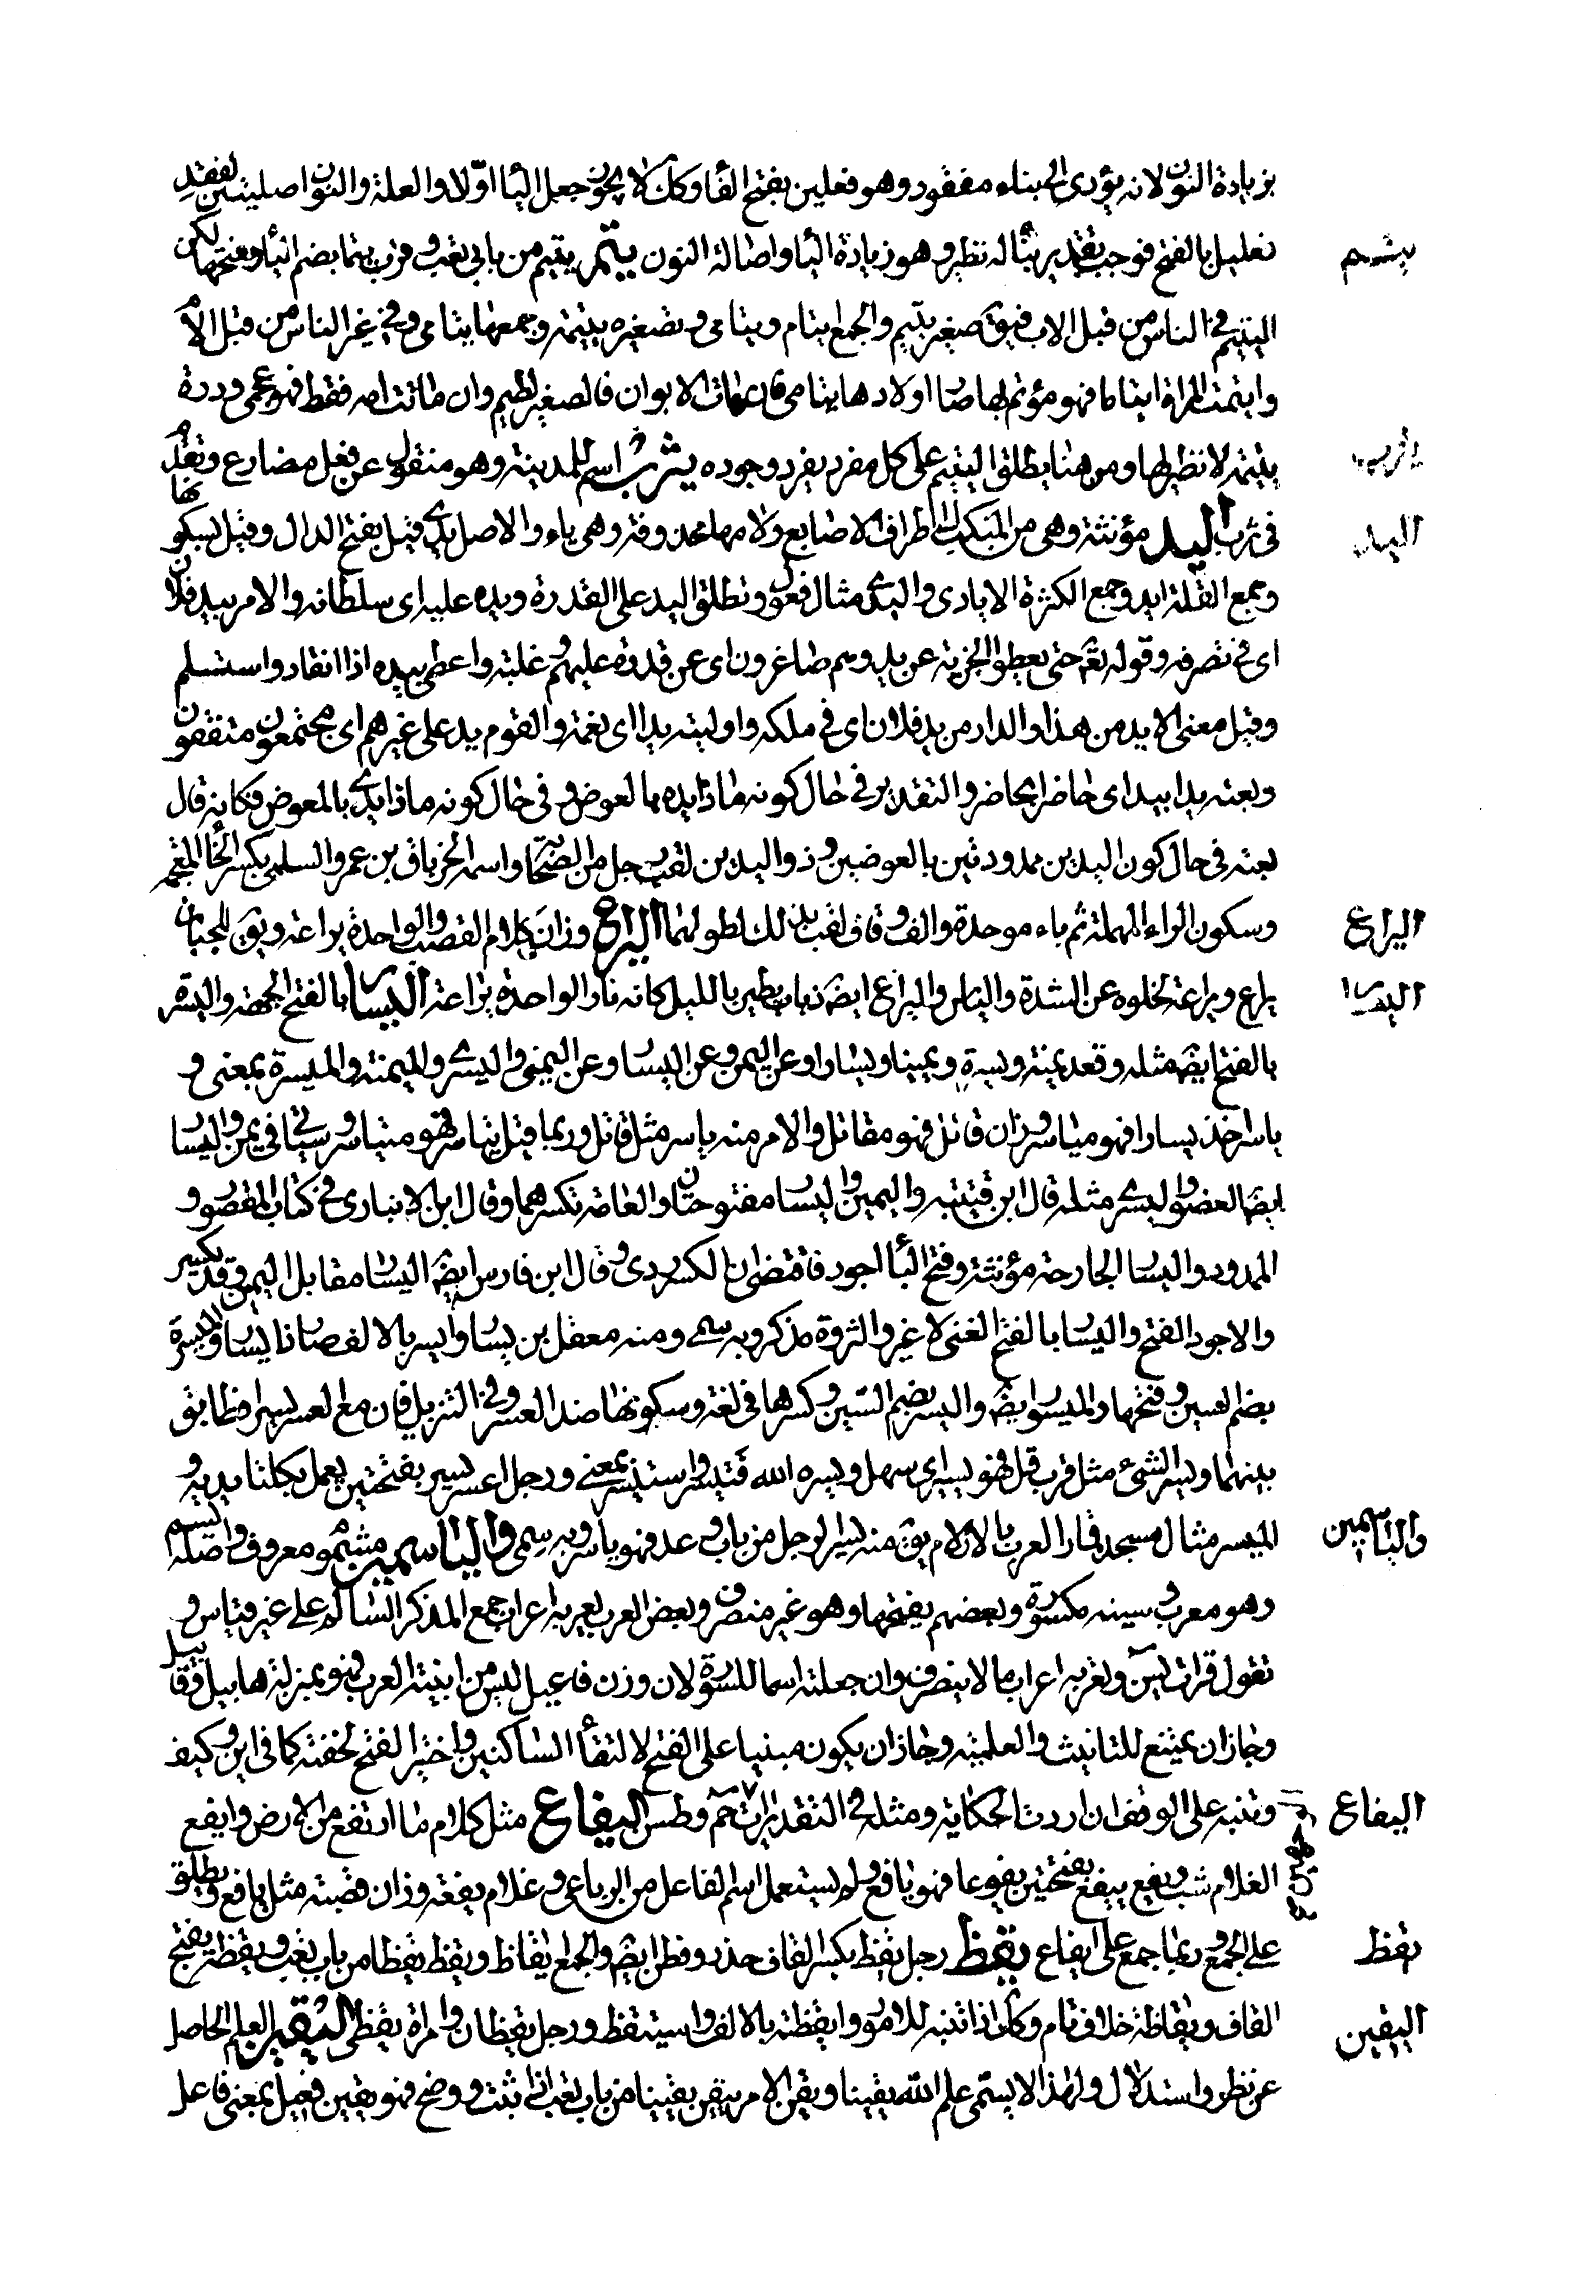 بزيادة النون لانه يؤدى الى بناء مفقود وهو فعلين بفتح الفا وكك لا يجوز جعل اليا اولا والعلة والنون اصليتين لفقد
فعليل بالفتح فوجب تقدير بناء له نظير وهو زيادة اليا واصالة النون يتم ييتم من بابى تعب وقرب يتما بضم اليا وفتحها لكن
يتيم
اليتيم فى الناس من قبل الاب فيق صغير يتيم والجمع ايتام ويتامى وصغيره يتيمة وجمعها يتامى وفى غير الناس من قبل الام
وايتمت المراة ايتاما فهو مؤتم صار اولادها يتامى فان مات الابوان فالصغير لطيم وان ماتت امه فقط فهو عجى ودرة
يتيمة لا نظير لها ومن هنا يطلق اليتيم على كل مفرد يفرد وجوده يثرب اسم للمدينة وهو منقول عن فعل مضارع وتقدم
يثرب
فى ثرب اليد مؤنثة وهى من المنكب الى اطراف الاصابع ولامها محذوفة وهى ياء والاصل يدى قيل بفتح الدال وقيل بسكونها
اليد
وجمع القلة ايد وجمع الكثرة الايادى واليدى مثال فعول وتطلق اليد على القدرة ويده عليه اى سلطانه والامر بيد فلان
اى فى تصرفه وقوله تعه حتى يعطوا الجزية عن يد وهم صاغرون اى عن قدرة عليهم وغلبة واعطى بيده اذا انقاد واستسلم
وقيل معنى الاية من هذا والدار من يد فلان اى فى ملكه واوليته يدا اى نعمة والقوم يد على غيرهم اى مجتمعون متفقون
وبعته يدا بيد اى حاضرا بحاضر والتقدير فى حال كونه مادا يده بالعوض وفى حال كونه مادا يدى بالمعوض فكانه قال
بعته فى حال كون اليدين ممدودتين بالعوضين وذو اليدين لقب رجل من الصحابة واسمه الخرباق بن عمرو السلمى بكسر الخا المعجمة
وسكون الراء المهملة ثم باء موحدة والف وقاف لقب بذلك لطولهما اليراع وزان كلام القصب والواحدة يراعة ويق للجبان
اليراع
يراع ويراعة لخلوه عن الشدة والباس واليراع ايضه ذباب يطير بالليل كانه نار الواحدة يراعة اليسار بالفتح الجهة واليسرة
اليسار
بالفتح ايضه مثله وقعد يمنة ويسرة ويمينا ويسارا وعن اليمين وعن اليسار وعن اليمنى واليسرى والميمنة والميسرة بمعنى و
ياسر اخذ يسارا فهو مياسر وزان قاتل فهو مقاتل والامر منه ياسر مثل قاتل وربما قيل تياسر فهو متياسر وسياتى فى يمن واليسار
ايضه العضو واليسرى مثله قال ابن قتيبة واليمين واليسار مفتوحتان والعامة تكسرهما وقال ابن الانبارى فى كتاب المقصور و
الممدود واليسار الجارحة مؤنثة وفتح اليا اجود فاقتضى ان الكسر ردى وقال ابن فارس ايضه اليسار مقابل اليمين وقد يكسر
والاجود الفتح واليسار بالفتح الغنى لا غير والثروة مذكر وبه سمى ومنه معقل بن يسار وايسر بالالف صار ذا يسار والميسرة
بضم السين وفتحها والميسور ايضه واليسر بضم السين وكسرها فى لغة وسكونها ضد العسر وفى التنزيل فان مع العسر يسرا فطابق
بينهما ويسر الشىء مثل قرب قل فهو يسير اى سهل ويسره الله فتيسر واستيسر بمعنى ورجل اعسر يسير بفتحتين يعمل بكلتا يديه و
الميسر مثال مسجد قمار العرب بالازلام يق منه يسر الرجل من باب وعد فهو ياسر وبه سمى والياسمين مشموم معروف واصله يسم
والياسمين
وهو معرب وسينه مكسورة وبعضهم يفتحها وهو غير منصرف وبعض العرب يعربه اعراب جمع المذكر السالم على غير قياس و
تقول قرات يس وتعربه اعراب ما لا ينصرف وان جعلته اسما للسورة لان وزن فاعيل ليس من ابنية العرب فهو بمنزلة هابيل وقابيل
وجاز ان يمتنع للتانيث والعلمية وجاز ان يكون مبنيا على الفتح لالتقاء الساكنين واختير الفتح لخفته كما فى اين وكيف
وتنبه على الوقف ان اردت الحكاية ومثله فى التقديرات حم وطس اليفاع مثل كلام ما ارتفع من الارض وايفع
اليفاع
الغلام شب ويفع ييفع بفتحتين يفوعا فهو يافع ولم يستعمل اسم الفاعل من الرباعى وغلام يفعة وزان قصبة مثل يافع ويطلق
على الجمع وربما جمع على ايفاع يقظ رجل يقظ بكسر القاف حذر وفطن ايضه والجمع ايقاظ ويقظ يقظا من باب تعب ويقظة بفتح
يقظ
القاف ويقاظة خلاف نام وكك اذا تنبه للامور وايقظته بالالف واستيقظ ورجل يقظان وامراة يقظى اليقين العلم الحاصل
اليقين
عن نظر واستدلال ولهذا لا يسمى علم الله يقينا ويقن الامر ييقن يقينا من باب تعب اذا ثبت ووضح فهو يقين فعيل بمعنى فاعل